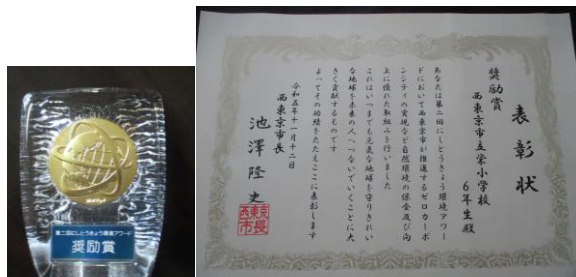 第二回にしとうきょう環境アワード
奨励賞
表彰状
奨励賞
西東京市立栄小学校
6年生殿
あなたは第二回にしとうきょう環境アワー
ドにおいて西東京市が推進するゼロカーボ
ンシティの実現など自然環境の保全及び向
上に優れた取組みを行いました
これはいつまでも元気な地球を守りきれい
な地球を未来の人へつないでいくことに大
きく貢献するものです
よってその功績をたたえここに表彰します
令和五年十一月十二日
西東京市長
池澤隆史
西東京
市長